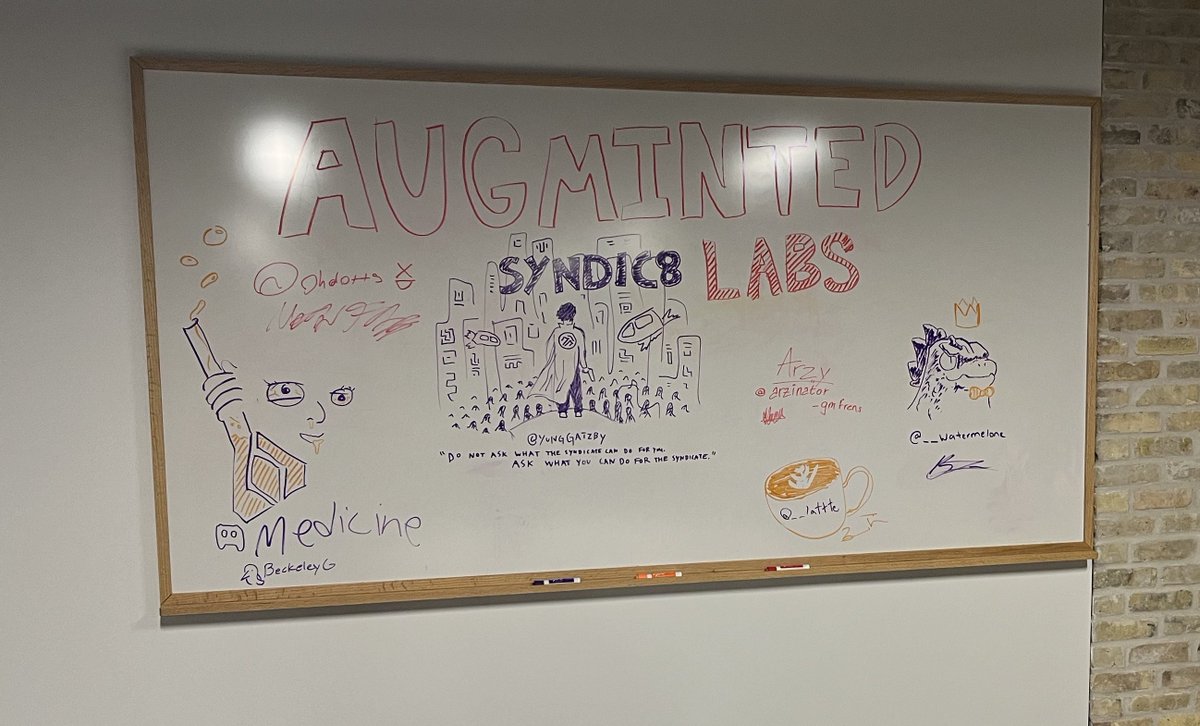 AUGMINTED
SYNDIC8 LABS
@ghdotts
Arzy
@arzinator
-gmfrens
@YUNGGATZBY
"DO NOT ASK WHAT THE SYNDICATE CAN DO FOR YOU.
ASK WHAT YOU CAN DO FOR THE SYNDICATE."
@__watermelone
@__latte
Medicine
BeckeleyG